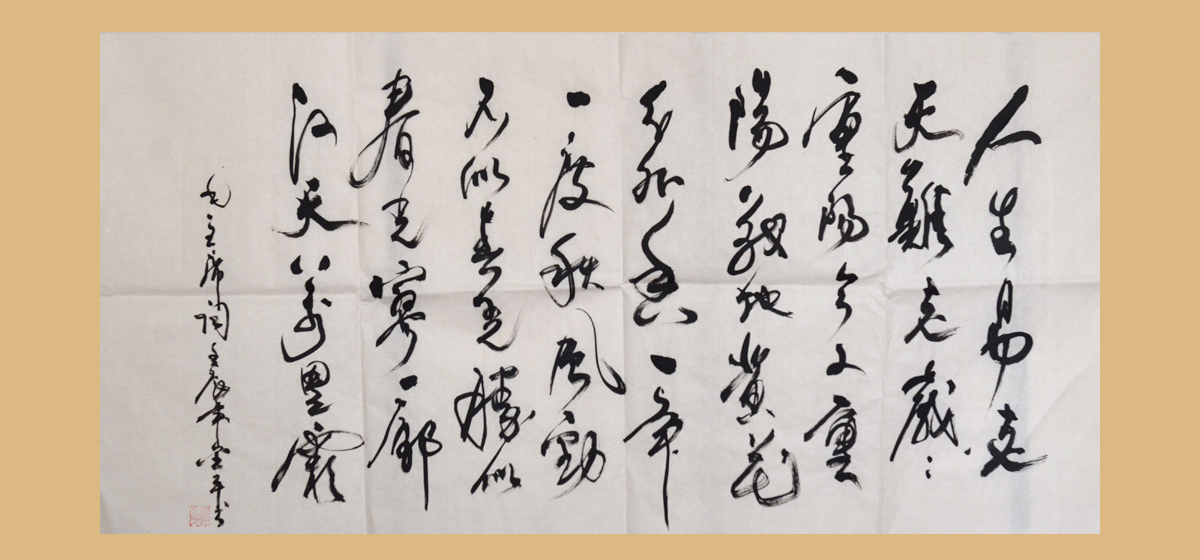 人生易老
天難老歲〻
重陽今又重
陽戰地黃花
分外香一年
一度秋風勁
不似春光勝似
春光寥廓
江天萬里霜
毛主席詞